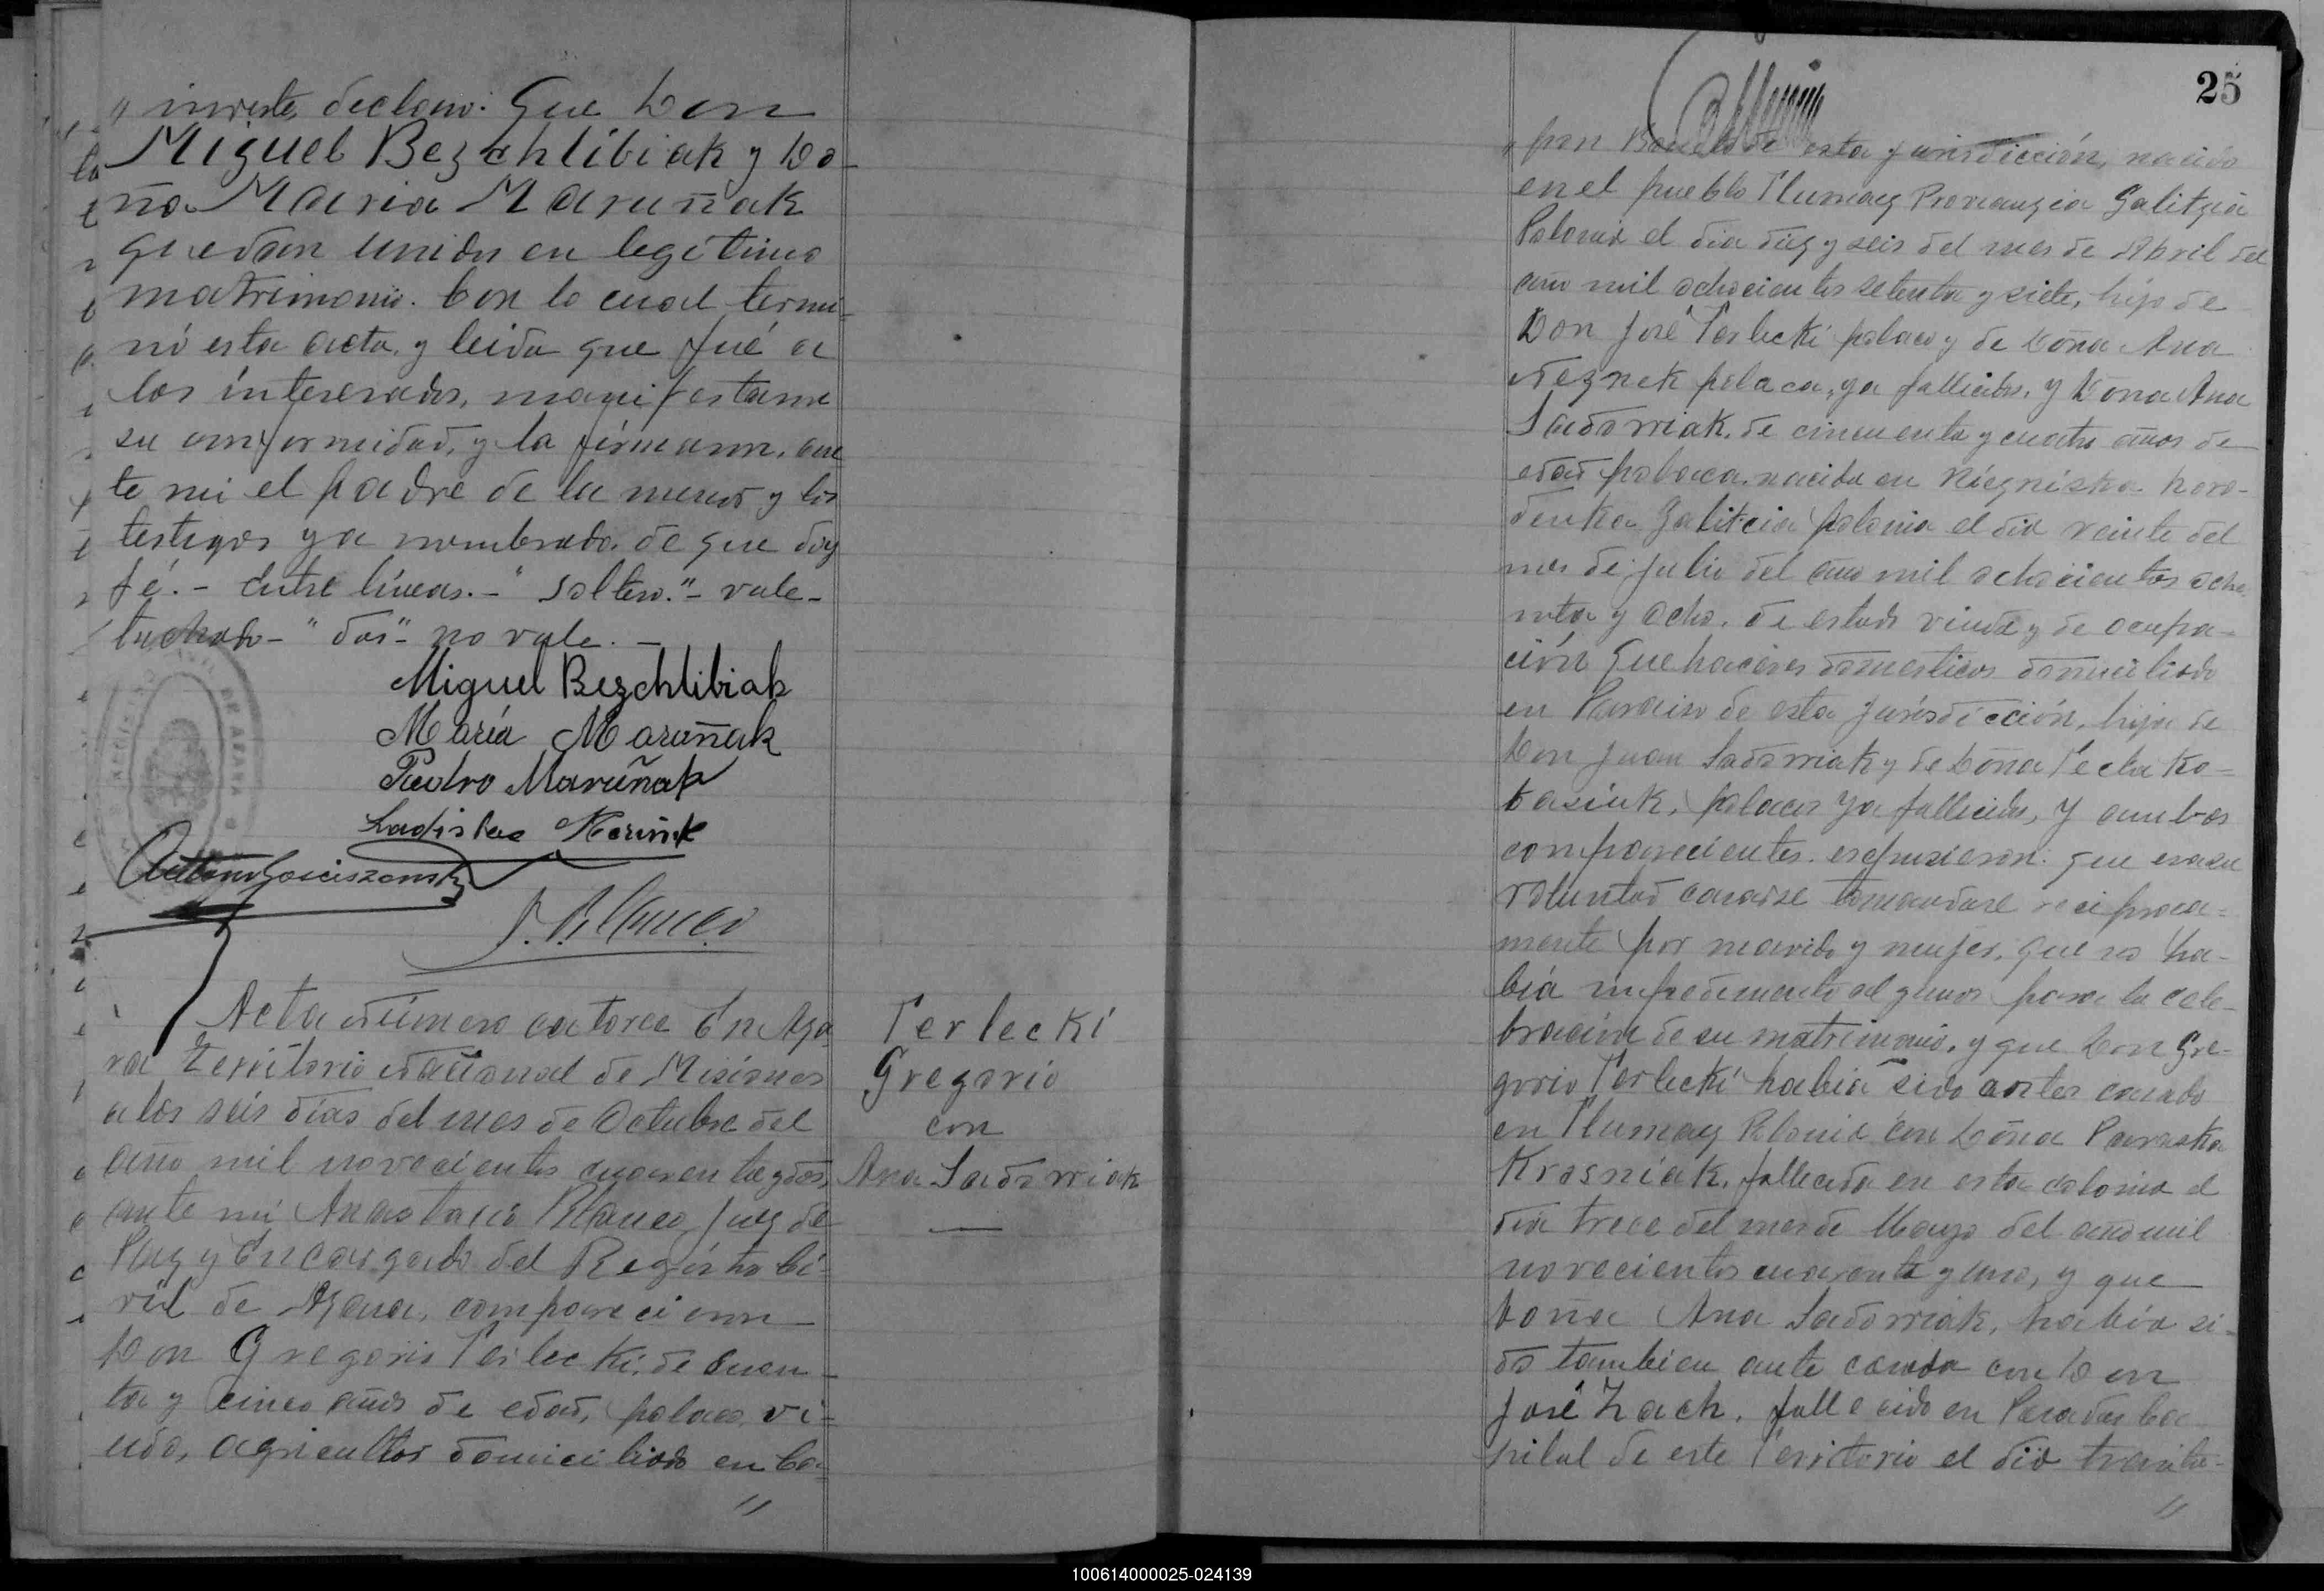 inviste, declaro: Que Don
Miguel Bezchlibiak y Do-
ña Maria Maruñak
quedan unidos en legítimo
matrimonio. Con lo cual termi-
nó esta acta, y leida que fué a
los interesados, manifestaron
su conformidad, y la firmaron, an
te mi el padre de la menor y los
testigos ya nombrados de que doy
fé.- Entre líneas.- "soltero."- vale-
tachado-"dos"- no vale.-
Miguel Bezchlibiak
María Maruñak
Pedro Maruñak
Ladislao
Acta número catorce En Aza
ra Territorio Nacional de Misiones
a los seis días del mes de Octubre del
año mil novecientos cuarenta y dos,
ante mi Anastacio Blanco Juez de
Paz y Encargado del Registro Ci-
vil de Azara, comparecieron
Don Gregorio Terlecki, de
ta y cinco años de edad, polaco, vi-
udo, agricultor domiciliado en Ca-
Terlecki
Gregorio
con
Ana Sadowiak
25
esta jurisdicción, nacido
en el pueblo Tlumacz Galitzia
Polonia el dia diez y seis del mes de Abril del
año mil ochocientos setenta y siete, hijo de
Don José Terlecki polaco y de Doña Ana
polaca, ya fallecidos, y Doña Ana
Sadowiak, de cincuenta y cuatro años de
edad polaca, nacida en horo-
denka Galitcia polonia el día veinte del
mes de Julio del año mil ochocientos oche
nta y ocho, de estado viuda y de ocupa-
ción Quehaceres domesticos domiciliado
en Paraiso de esta jurisdicción, hija de
Don Juan Sadowiak y de Doña Tecla Ko-
basiuk, polacos ya fallecidos, y ambos
comparecientes expusieron: que era su
voluntad casarse tomandose reciproca-
mente por marido y mujer, que no ha-
bia impedimento alguno para la cele-
bración de su matrimonio, y que Don Gre-
gorio Terlecki habia sido antes casado
en Tlumacz Polonia con Doña Paraska
Krasniak, fallecida en esta colonia el
día trece del mes de Marzo del año mil
novecientos cuarenta y uno, y que
Doña Ana Sadowiak, habia si-
do tambien ante casada con Don
José Zach, fallecido en Posadas Ca
pital de este Territorio el día treinta-
100614000025-024139